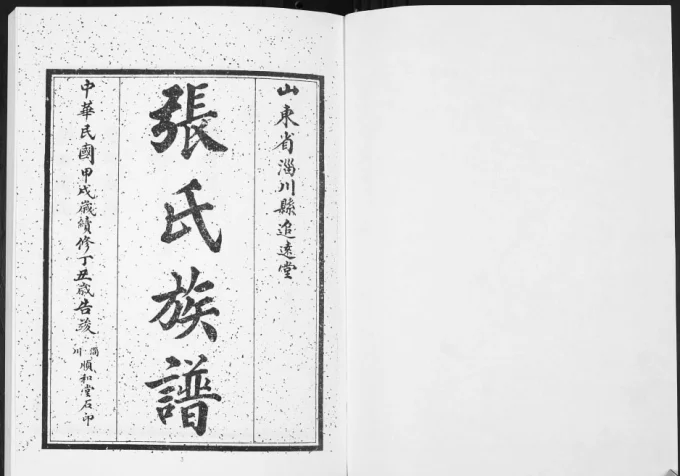 山東省淄川縣追遠堂
張氏族譜
中華民國甲戌歲續修丁丑歲告竣
淄川順和堂石印